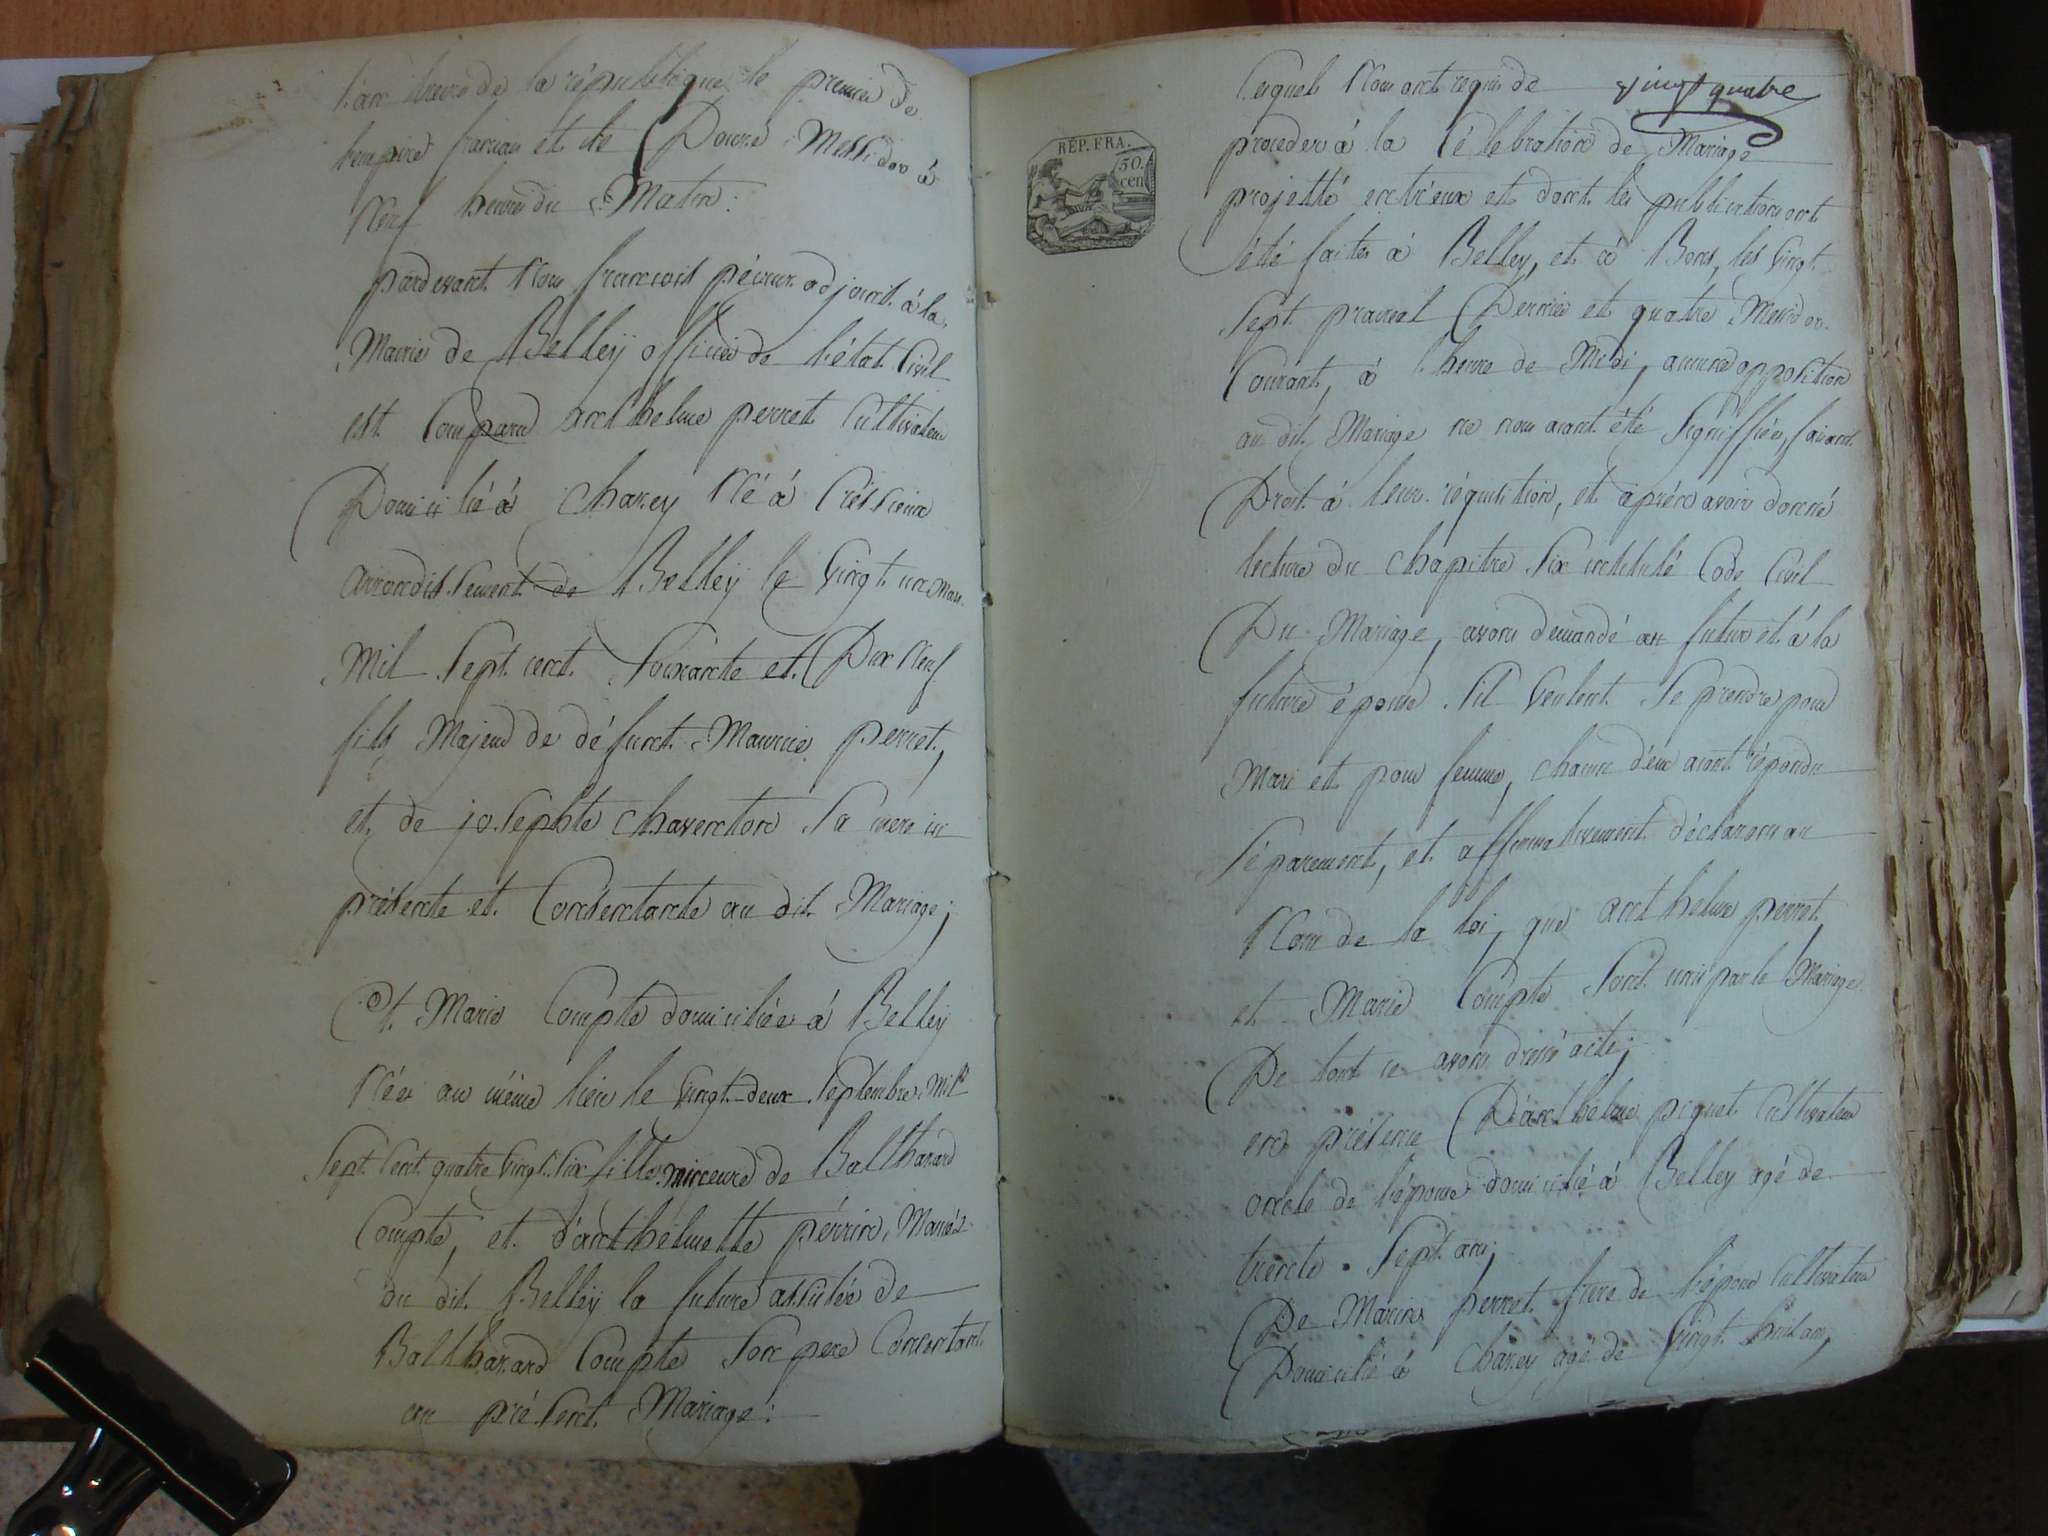 l'an treize de la république le premier de
l'empire francais et le Douze Messidor à
Neuf heures du Matin:
pardevant Nous francois péroux adjoint à la
Mairie de Belleÿ officier de l'état Civil
est Comparu anthelme perret Cultivateur
Domicilié à Chazey Né à Cressieux
arrondissement de Belleÿ le Vingt un Mars
Mil Sept cent Soixante et Dix Neuf
fils Majeur de défunt Maurice perret,
et de josephte Chaventon Sa mere ici
présente et Consentante au dit Mariage;
Et Marie Compte domiciliée à Belley
Née au même lieu le Vingt-deux Septembre Mil
Sept Cent quatre Vingt Six fille mineure de Balthazard
Compte, et d'anthelmette pérrin, Mariés
du dit Belleÿ la future assistée de
Balthazard Compte Son pere Consentant
au présent Mariage:
vingt quatre
Lesquels Nous ont requis de
proceder à la Célébration de Mariage
projetté entr'eux et dont les publications ont
été faites à Belley, et à Bons, les Vingt
Sept prairial Dernier et quatre Messidor
Courant, à l'heure de Midi, aucune opposition
au dit Mariage ne nous aiant été Signiffiée, faisant
Droit à leur réquisition, et après avoir donné
lecture du Chapitre Six intitulé Code Civil
Du Mariage, avons demandé au futur et à la
future épouse S'il Veulent Se prendre pour
Mari et pour femme, chacun d'eux aiant répondu
Séparement, et affirmativement déclarons au
Nom de la loi, que anthelme perret,
et Marie Compte Sont unis par le Mariage
De tout ce avons dressé acte;
en présence D'anthelme piquet Cultivateur
oncle de l'épouse domicilié à Belley agé de
trente Sept ans;
De Marin perret frere de l'époux Cultivateur
Domicilié à Chazey agé de Vingt huit ans;
RÉP. FRA.
50.
cen